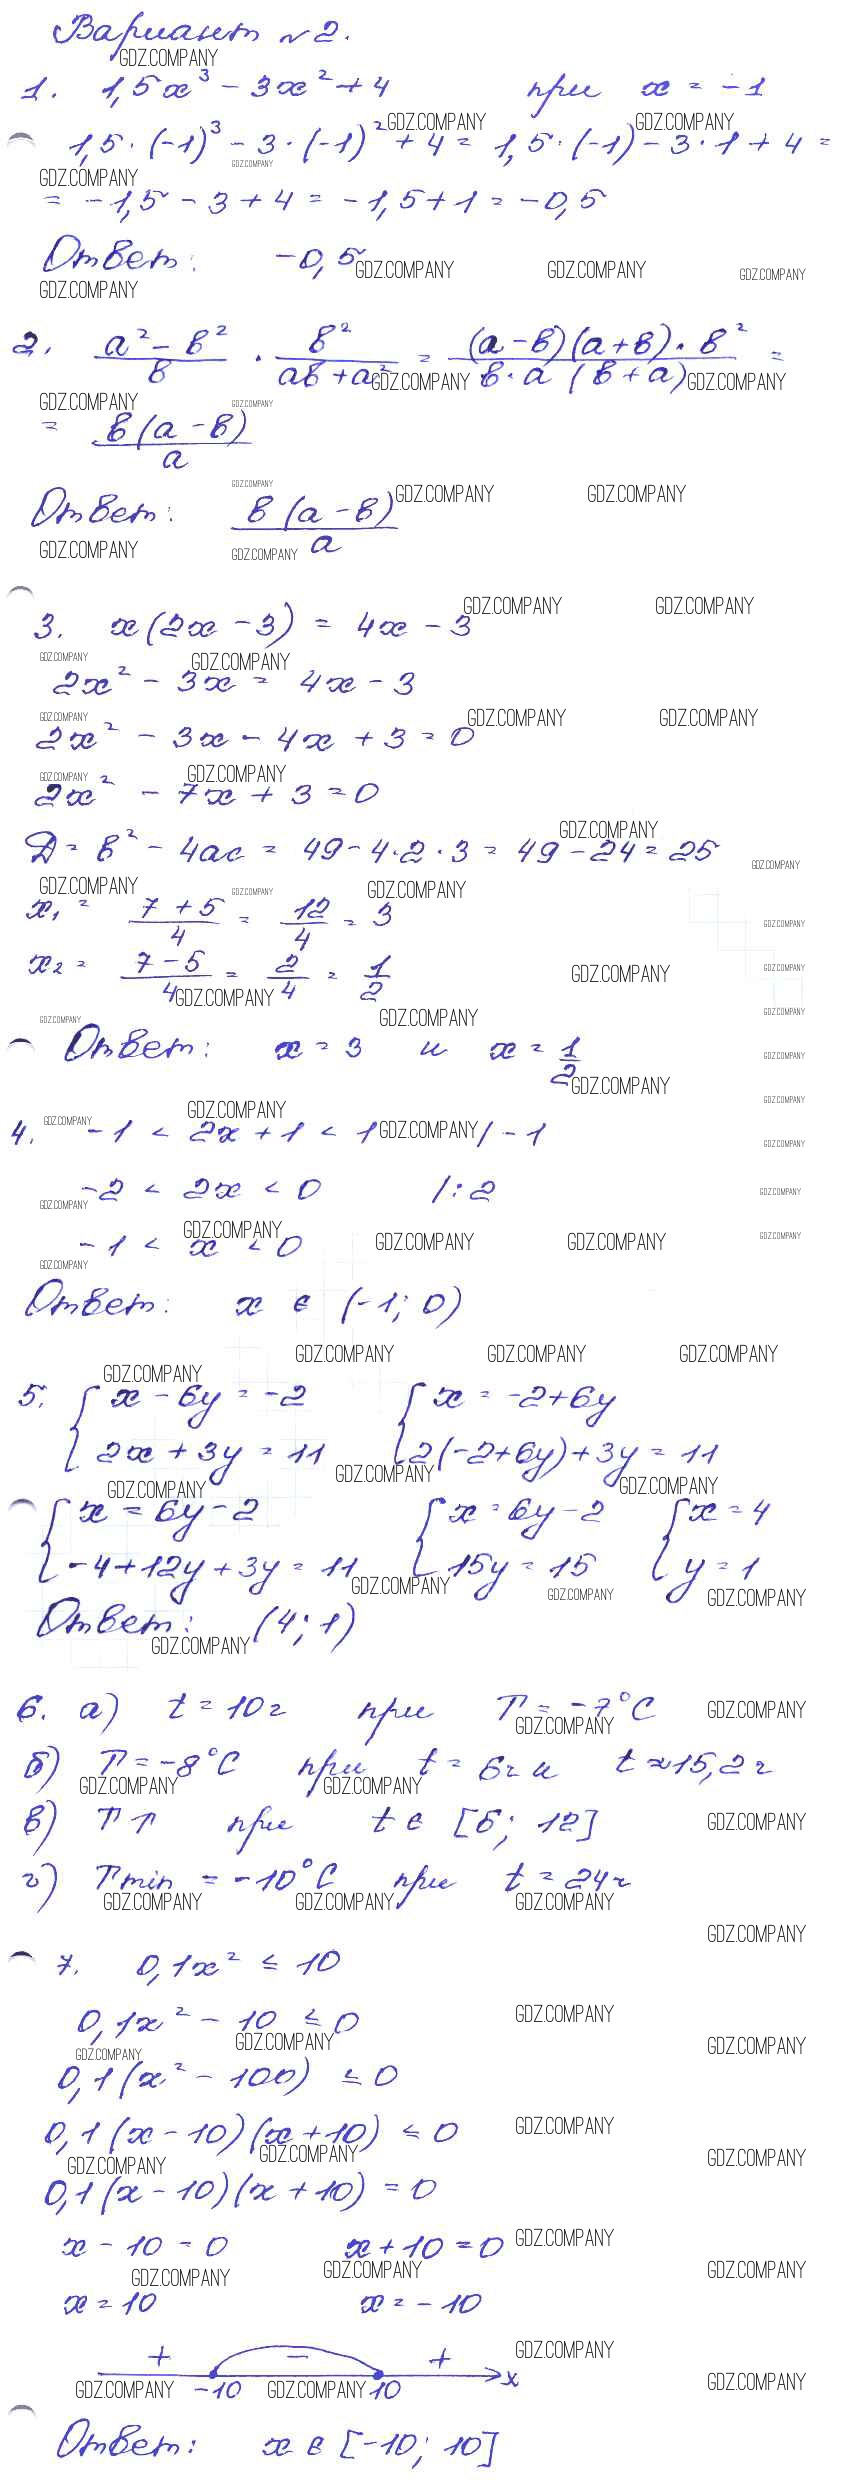 Вариант №2.
1. 1,5x³ - 3x² + 4 при x = -1
1,5·(-1)³ - 3·(-1)² + 4 = 1,5·(-1) - 3·1 + 4 =
= -1,5 - 3 + 4 = -1,5 + 1 = -0,5
Ответ: -0,5
2. (a² - b²)/b · b²/(ab + a²) = ((a - b)(a + b)·b²)/(b·a(b + a)) =
= b(a - b)/a
Ответ: b(a - b)/a
3. x(2x - 3) = 4x - 3
2x² - 3x = 4x - 3
2x² - 3x - 4x + 3 = 0
2x² - 7x + 3 = 0
Д = b² - 4ac = 49 - 4·2·3 = 49 - 24 = 25
x₁ = (7 + 5)/4 = 12/4 = 3
x₂ = (7 - 5)/4 = 2/4 = 1/2
Ответ: x = 3 и x = 1/2
4. -1 < 2x + 1 < 1 / -1
-2 < 2x < 0 /:2
-1 < x < 0
Ответ: x ∈ (-1; 0)
5. { x - 6y = -2 { x = -2 + 6y
2x + 3y = 11 2(-2 + 6y) + 3y = 11
{ x = 6y - 2 { x = 6y - 2 { x = 4
-4 + 12y + 3y = 11 15y = 15 y = 1
Ответ: (4; 1)
6. а) t = 10г при T = -7°C
б) T = -8°C при t = 6г и t ≈ 15,2г
в) T ↑ при t ∈ [6; 12]
г) Tmin = -10°C при t = 24г
7. 0,1x² ≤ 10
0,1x² - 10 ≤ 0
0,1(x² - 100) ≤ 0
0,1(x - 10)(x + 10) ≤ 0
0,1(x - 10)(x + 10) = 0
x - 10 = 0 x + 10 = 0
x = 10 x = -10
+ - +
-10 10 x
Ответ: x ∈ [-10; 10]
GDZ.COMPANY